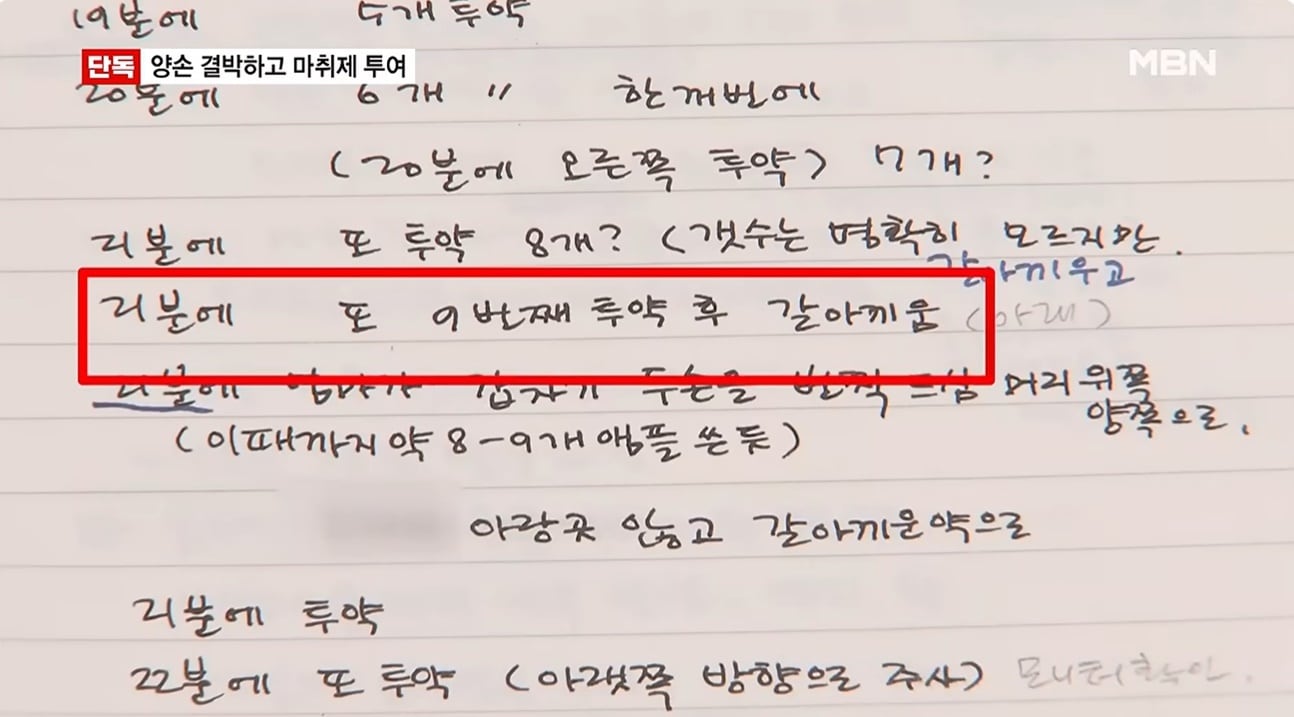 19분에 5개 투약
단독 양손 결박하고 마취제 투여
MBN
20분에 6개 〃 한꺼번에
(20분에 오른쪽 투약) 7개?
21분에 또 투약 8개? (갯수는 명확히 모르지만.
갈아끼우고
21분에 또 9번째 투약 후 갈아끼움 (아래)
21분에 엄마가 갑자기 두손을 번쩍 드심 머리 위쪽
양쪽으로.
(이때까지 약 8-9개 앰플 쓴 듯)
아랑곳 않고 갈아끼운 약으로
21분에 투약
22분에 또 투약 (아랫쪽 방향으로 주사)